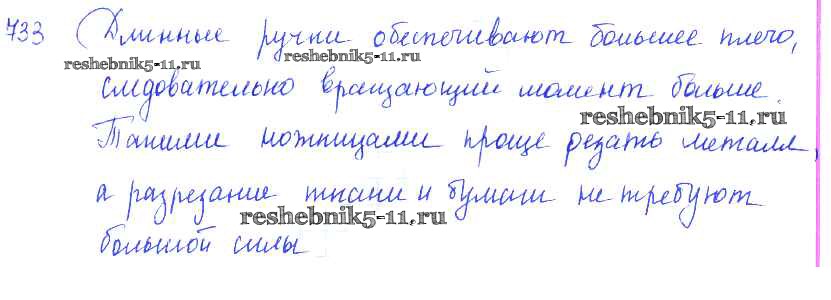 733 Длинные ручки обеспечивают большее плечо,
reshebnik5-11.ru reshebnik5-11.ru
следовательно вращающий момент больше.
reshebnik5-11.ru
Такими ножницами проще резать металл,
а разрезание ткани и бумаги не требуют
reshebnik5-11.ru
большой силы